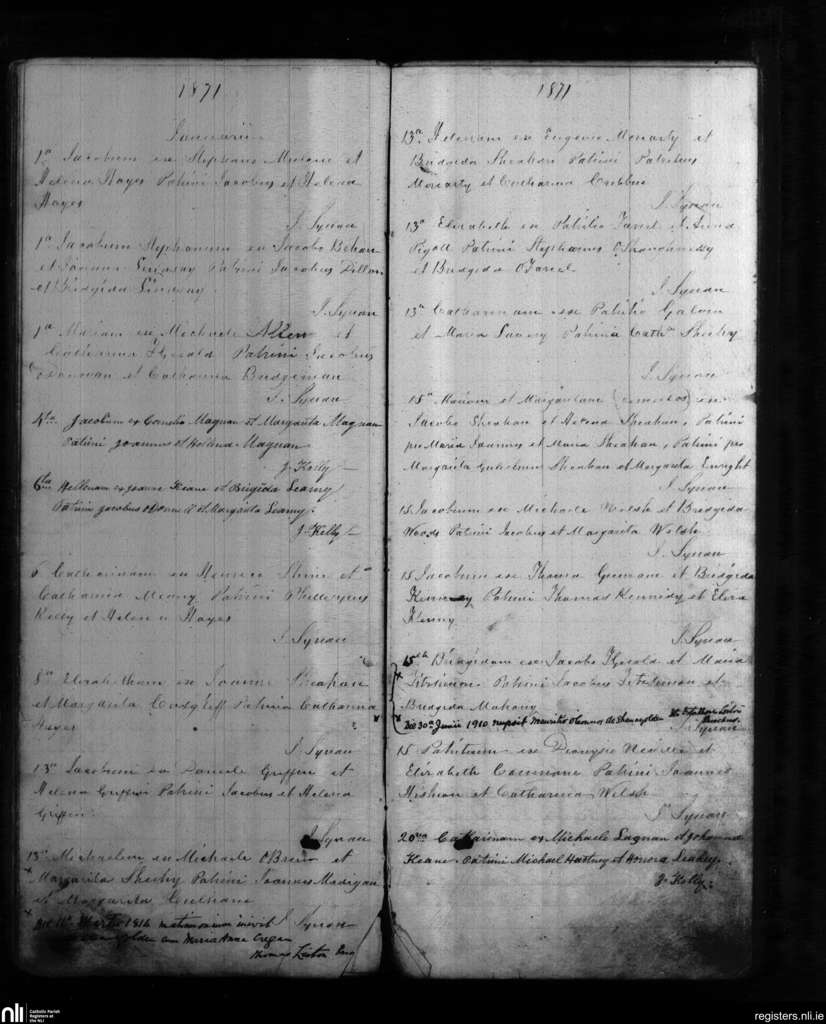 1871
Januarii
1a Jacobum ex Stephano Mulcare et
Helena Hayes Patrini Jacobus et Helena
Hayes
J. Synan
1a Jacobum Stephanum ex Jacobo Behan
et Joanna Lindsay Patrini Jacobus Dillon
et Bridgida Lindsay.
J. Synan
1a Mariam ex Michaele Allen et
Catharina Fherald Patrini Jacobus
Donovan et Catharina Bridgeman
J. Synan
4ta Jacobum ex Cornelio Magnan et Margarita Magnan
Patrini Joannes et Hellena Magnan
J. Kelly
6ta Hellenam ex Joanne Keane et Brigida Leamy
Patrini Jacobus et Margarita Leamy.
J. Kelly
6 Catharinam ex Henrico Shine et
Catharina Meany Patrini Phillippus
Kelly et Helena Hayes
J. Synan
8a Elizabetham ex Joanne Sheahan
et Margarita Patrina Catharina
Hayes
J. Synan
13a Jacobum ex Daniele Griffin et
Helena Griffin Patrini Jacobus et Helena
Griffin
J. Synan
13a Michaelem ex Michaele OBrien et
Margarita Sheehy Patrini Joannes Madigan
et Margarita
J. Synan
Die Martii matrimonium inivit
cum Maria Anna Cregan
Thomas Liston
1871
13a Helenam ex Eugenio Moriarty et
Bridgida Sheehan Patrini Patritius
Moriarty et Catharina Cribbin
J. Synan
13a Elizabeth ex Patritio Farrel et Anna
Patrini Stephanus OShaughnessy
et Bridgida OFarrel
J. Synan
13a Catharinam ex Patritio Galvin
et Maria Patrina Cathna Sheehy
J. Synan
15a Mariam et Margaritam ex
Jacobo Sheahan et Helena Sheahan, Patrini
pro Maria Joannes et Maria Sheahan, Patrini pro
Margarita Gulielmus Sheahan et Margarita Enright
J. Synan
15 Jacobum ex Michaele Welsh et Bridgida
Woods Patrini Jacobus et Margarita Welsh
J. Synan
15 Jacobum ex Thoma et Bridgida
Kennedy Patrini Thomas Kennedy et Eliza
Kenny
J. Synan
15th Bridgidam ex Jacobo Fherald et Maria
Fitzsimon Patrini Jacobus Fitzsimon et
Bridgida Mahony
Die 30a Junii 1910 nupsit Mauritio OConnor de Shanagolden
J. Synan
15 Patritium ex Dionysio Neville et
Elizabeth Patrini Joannes
et Catharina Welsh
J. Synan
20ma Catharinam ex Michaele Lagnan et Johanna
Keane. Patrini Michael Hartney et Honora Leahy.
J. Kelly
nli
Catholic Parish
Registers at
the NLI
registers.nli.ie